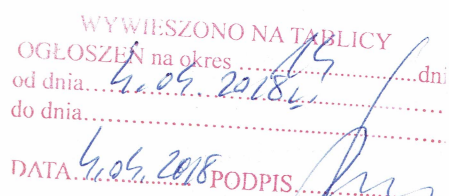 WYWIESZONO NA TABLICY
OGŁOSZEŃ na okres 14 dni
od dnia 4.04.2018r.
do dnia
DATA 4.04.2018 PODPIS